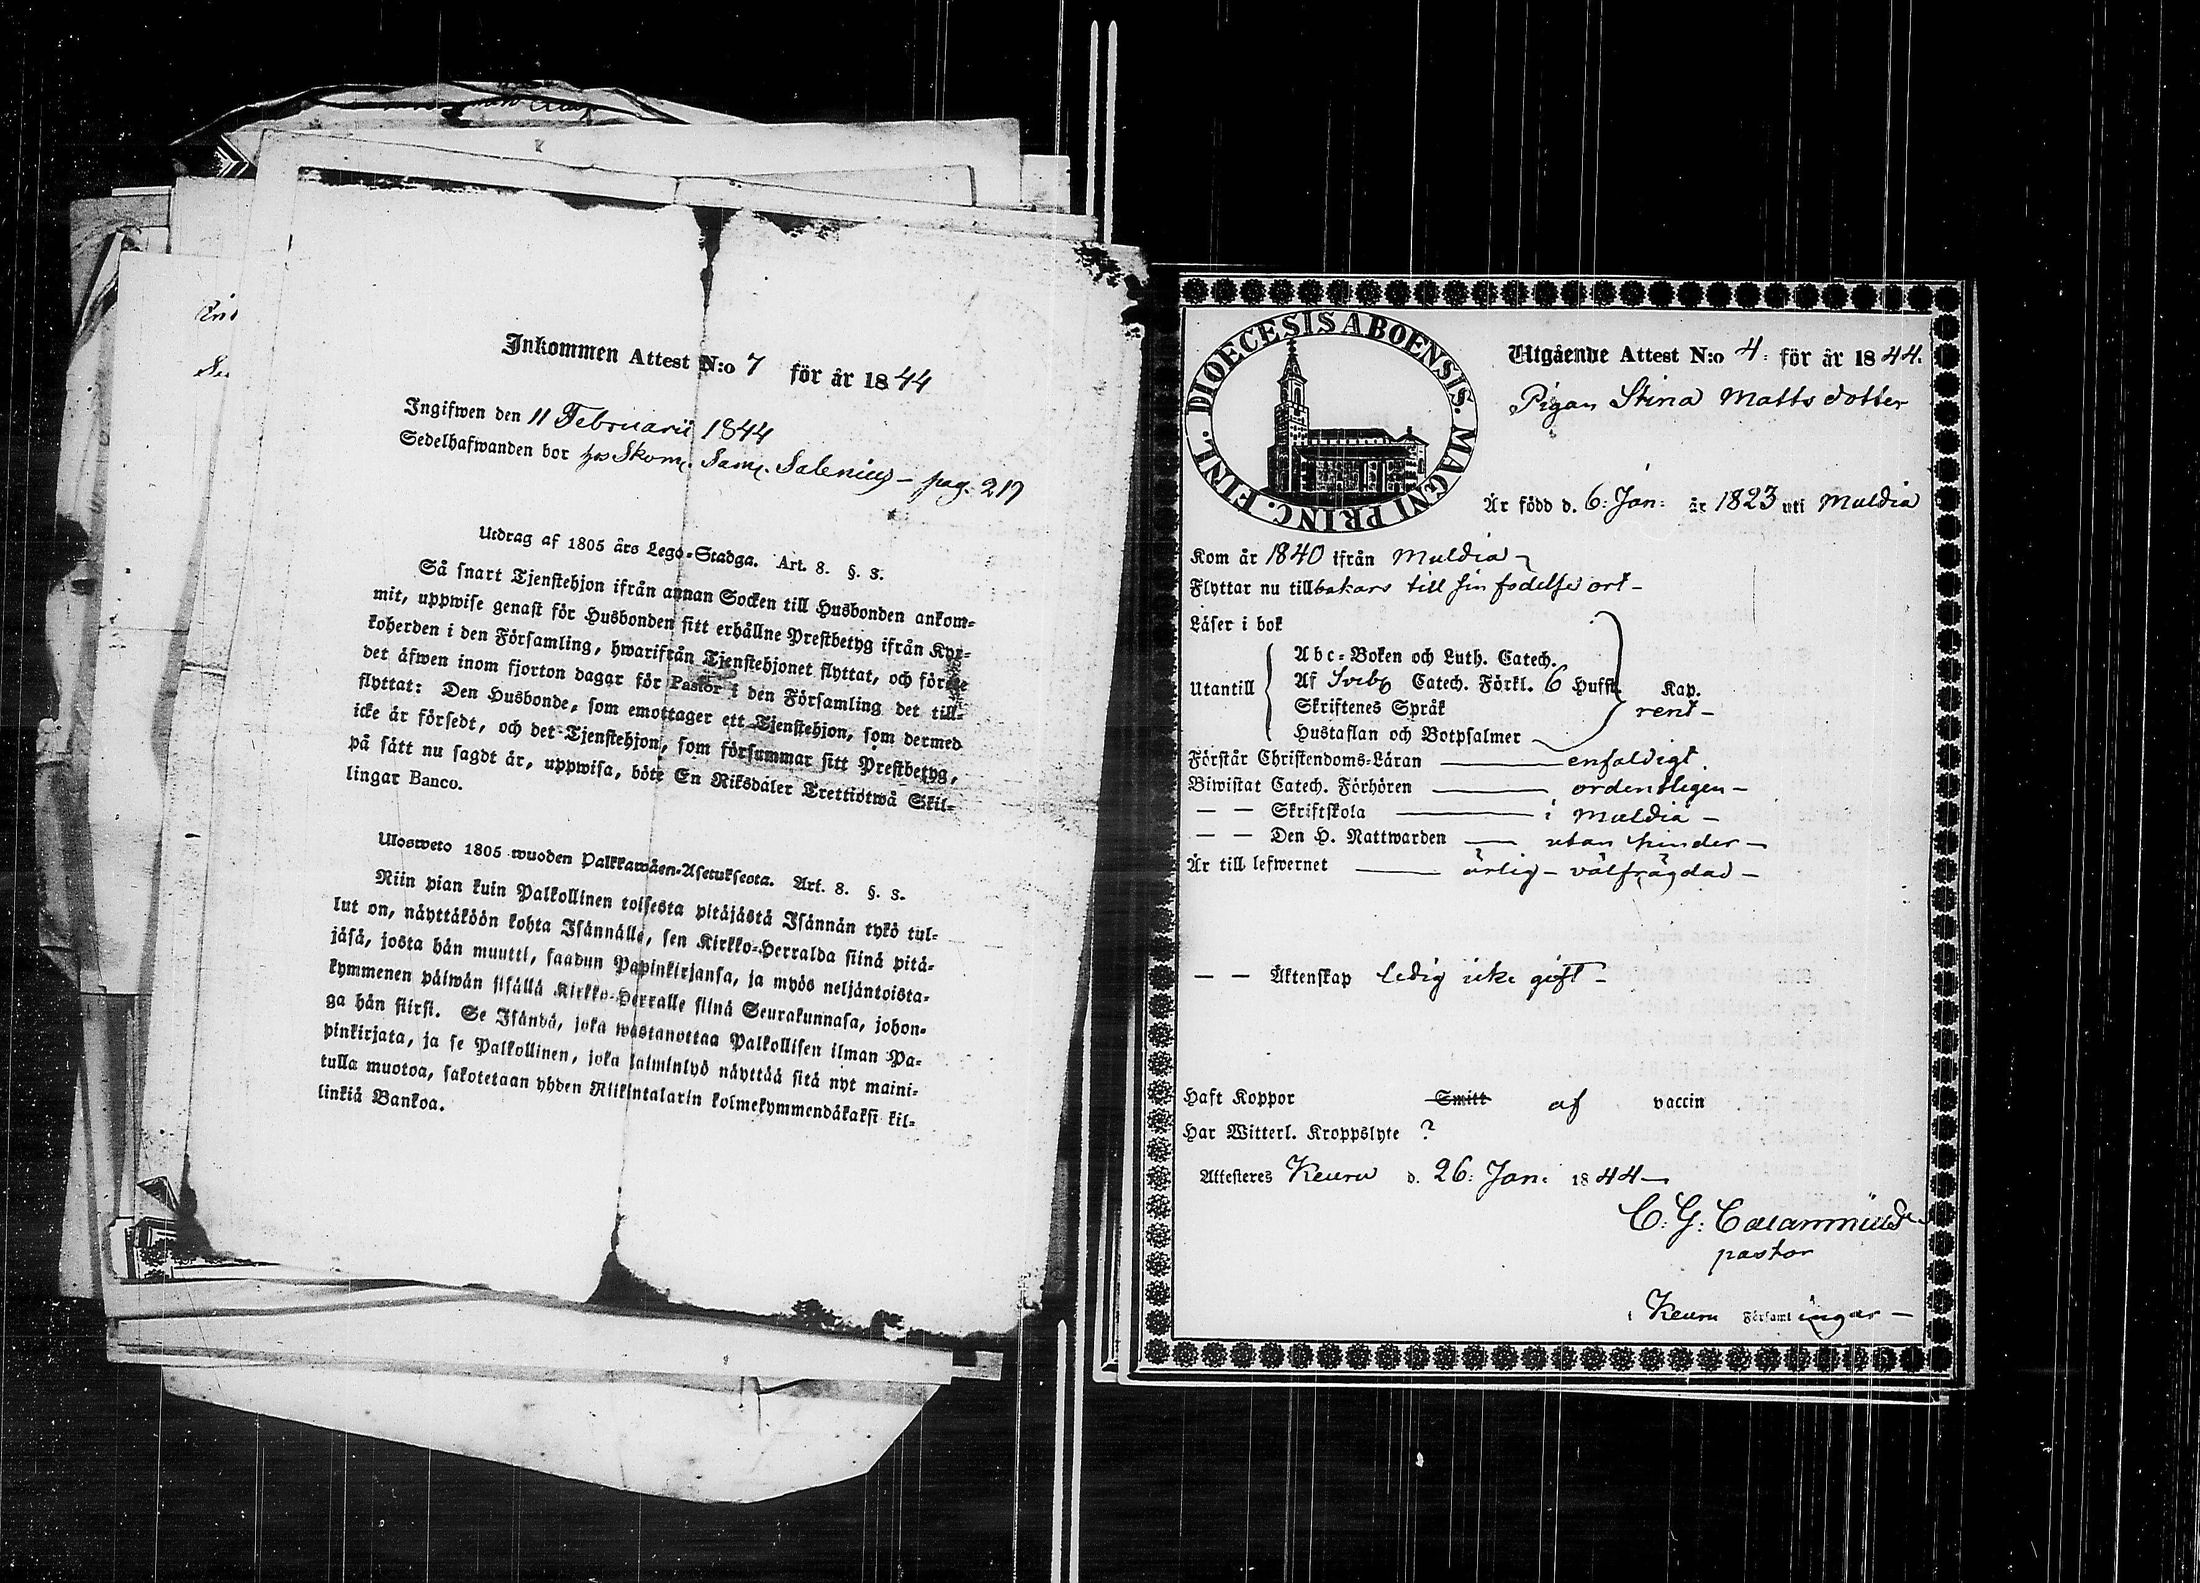 Inkommen Attest N:o 7 för år 1844
Ingifwen den 11 Februarii 1844
Sedelhafwanden bor hos Skom. Sam. Salenius – pag. 217
Utdrag af 1805 års Lego-Stadga. Art. 8. §. 3.
Så snart Tjenstehjon ifrån annan Socken till Husbonden ankom-
mit, uppwise genast för Husbonden sitt erhållne Prestbetyg ifrån Kyr-
koherden i den Församling, hwarifrån Tjenstehjonet flyttat, och förete
det äfwen inom fjorton dagar för Pastor i den Församling det till-
flyttat: Den Husbonde, som emottager ett Tjenstehjon, som dermed
icke är försedt, och det Tjenstehjon, som försummar sitt Prestbetyg,
på sätt nu sagdt är, uppwisa, böte En Riksdaler Trettiotwå Skil-
lingar Banco.
Ulosweto 1805 wuoden Palkkawäen-Asetuksesta. Art. 8. §. 3.
Niin pian kuin Palkollinen toisesta pitäjästä Isännän tykö tul-
lut on, näyttäköön kohta Isännälle, sen Kirkko-Herralda siinä pitä-
jäsä, josta hän muutti, saadun Papinkirjansa, ja myös neljäntoista-
kymmenen päiwän sisällä Kirkko-Herralle siinä Seurakunnasa, johon-
ga hän siirsi. Se Isändä, joka wastanottaa Palkollisen ilman Pa-
pinkirjata, ja se Palkollinen, joka laiminlyö näyttää sitä nyt maini-
tulla muotoa, sakotetaan yhden Riikintalarin kolmekymmendäkaksi kil-
linkiä Bankoa.
DIOECESIS ABOENSIS. MAGNI PRINC. FINL.
Utgående Attest N:o 4: för år 1844.
Pigan Stina Mattsdotter
Är född d. 6: Jan: år 1823 uti Muldia
Kom år 1840 ifrån Muldia
Flyttar nu tillbakars till sin födelse ort –
Läser i bok
Utantill
Abc-Boken och Luth. Catech.
Af Sveb. Catech. Förkl. 6 Hufst. Kap.
Skriftenes Språk rent –
Hustaflan och Botpsalmer
Förstår Christendoms-Läran enfaldigt.
Biwistat Catech. Förhören ordentligen –
— — Skriftskola i Muldia –
— — Den H. Nattwarden utan hinder –
Är till lefwernet ärlig – välfrägdad –
— — Äktenskap ledig icke gift –
Haft Koppor Smitt af vaccin
Har Witterl. Kroppslyte ?
Attesteres Keuru d. 26: Jan: 1844 –
C: G:
pastor
i Keuru Församlingar –